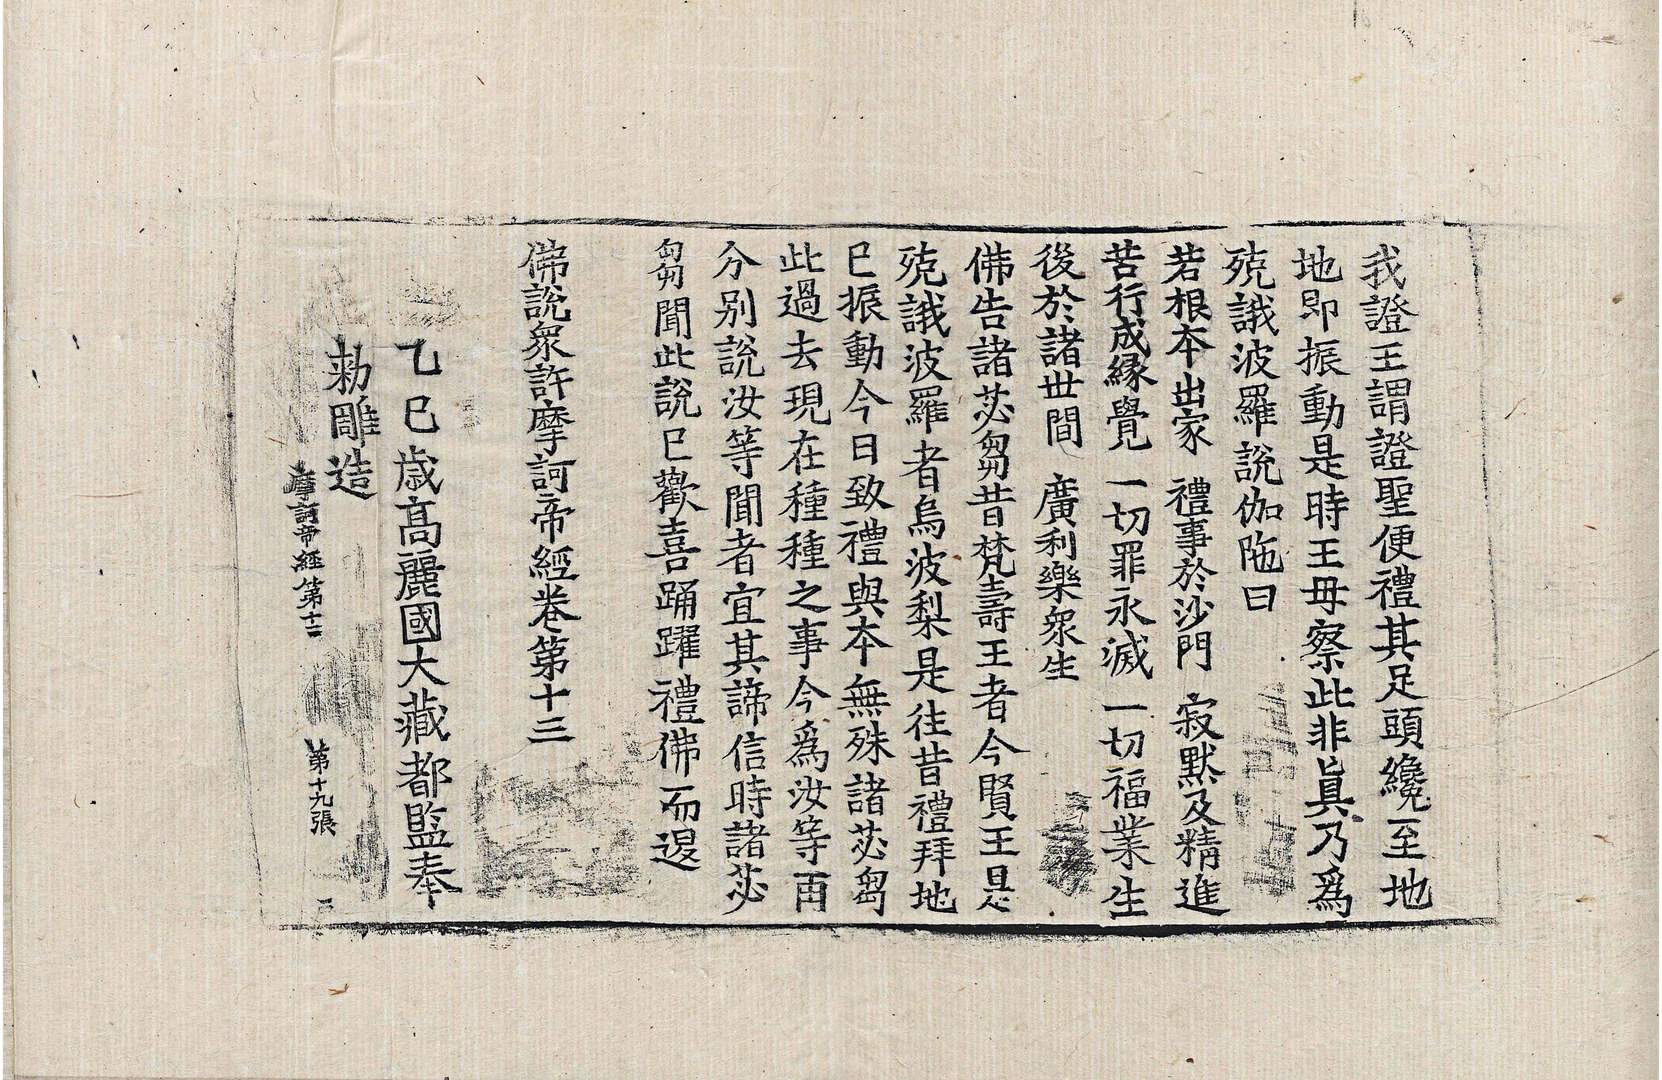 我證王謂證聖便禮其足頭纔至地
地即振動是時王母察此非眞乃爲
殑誐波羅說伽陁曰
若根本出家　禮事於沙門　寂默及精進
苦行成緣覺　一切罪永滅　一切福業生
後於諸世間　廣利樂衆生
佛告諸苾芻昔梵壽王者今賢王是
殑誐波羅者烏波梨是往昔禮拜地
已振動今日致禮與本無殊諸苾芻
此過去現在種種之事今爲汝等再
分別說汝等聞者宜其諦信時諸苾
芻聞此說已歡喜踊躍禮佛而退
佛說衆許摩訶帝經卷第十三
乙巳歲高麗國大藏都監奉
勅雕造
摩訶帝經第十三　第十九張